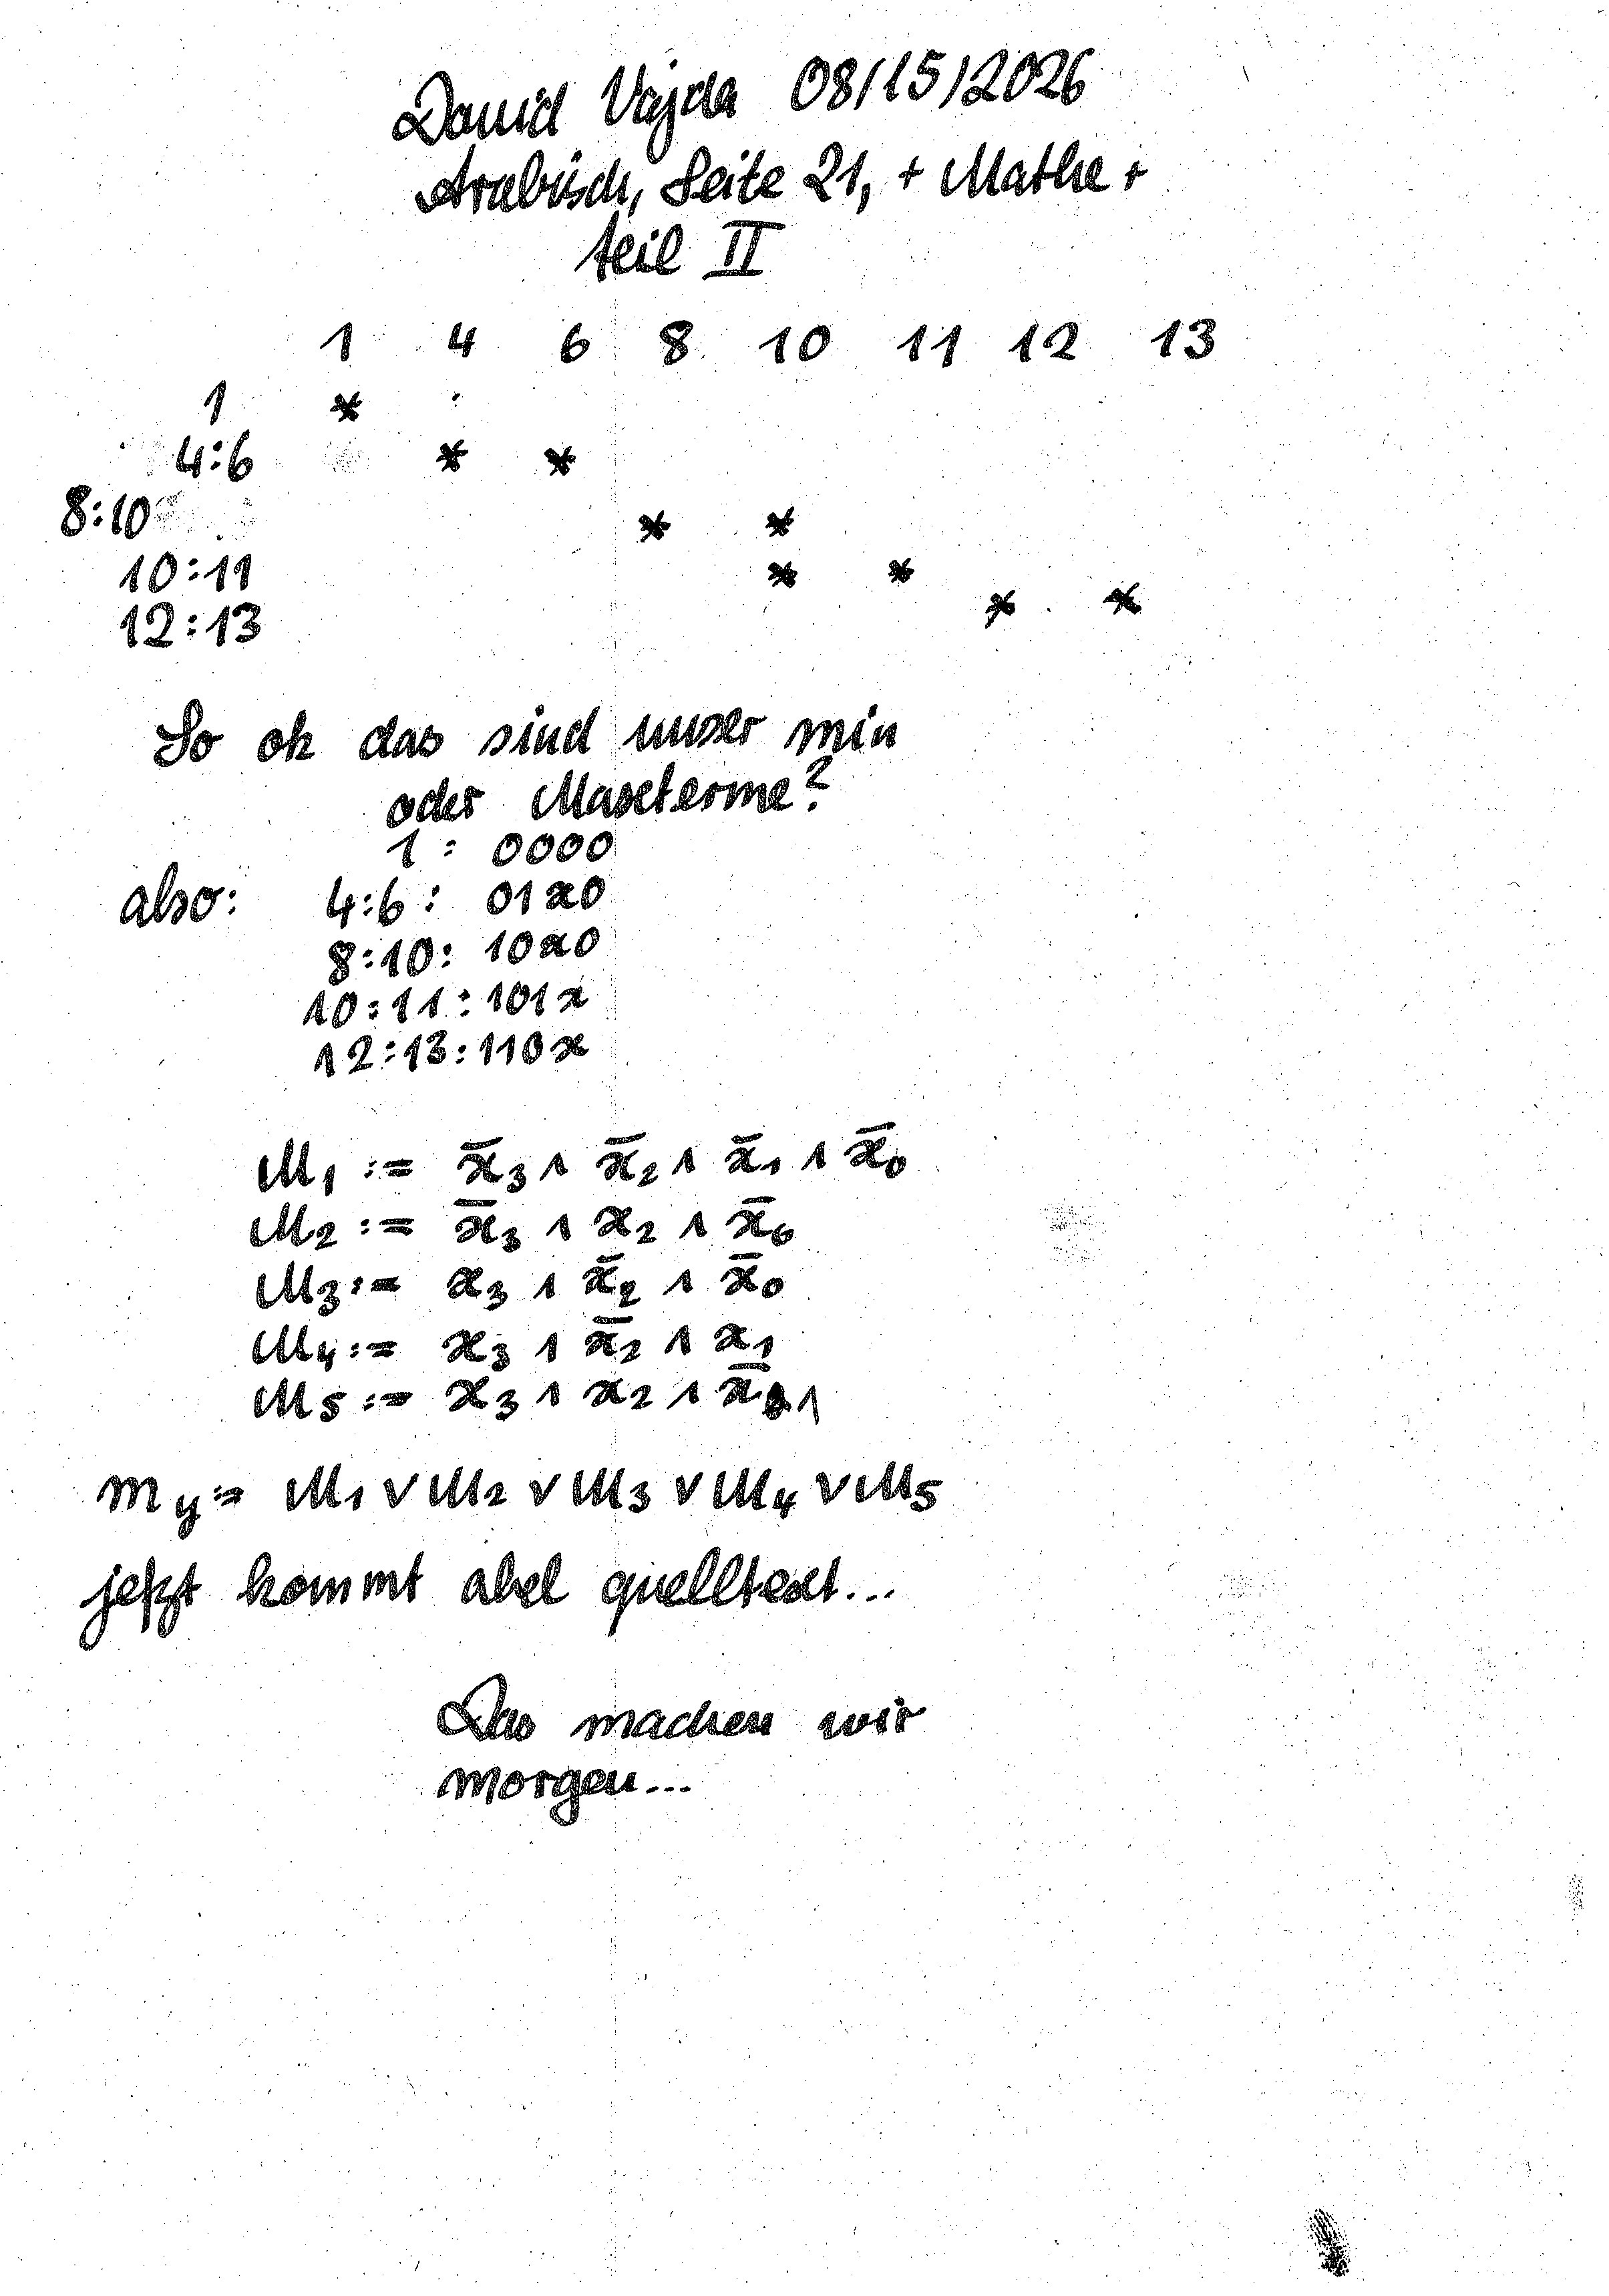 David Vajda 08/15/2026
Arabisch, Seite 21, + Mathe +
teil II
1 4 6 8 10 11 12 13
1 *
4:6 * *
8:10 * *
10:11 * *
12:13 * *
So ok das sind unser min
oder Maxterme?
1 : 0000
also: 4:6 : 01x0
8:10: 10x0
10:11: 101x
12:13: 110x
M₁ := x̄₃ ∧ x̄₂ ∧ x̄₁ ∧ x̄₀
M₂ := x̄₃ ∧ x₂ ∧ x̄₀
M₃ := x₃ ∧ x̄₂ ∧ x̄₀
M₄ := x₃ ∧ x̄₂ ∧ x₁
M₅ := x₃ ∧ x₂ ∧ x̄₁
m y := M₁ ∨ M₂ ∨ M₃ ∨ M₄ ∨ M₅
jetzt kommt abel quelltext...
Das machen wir
morgen...